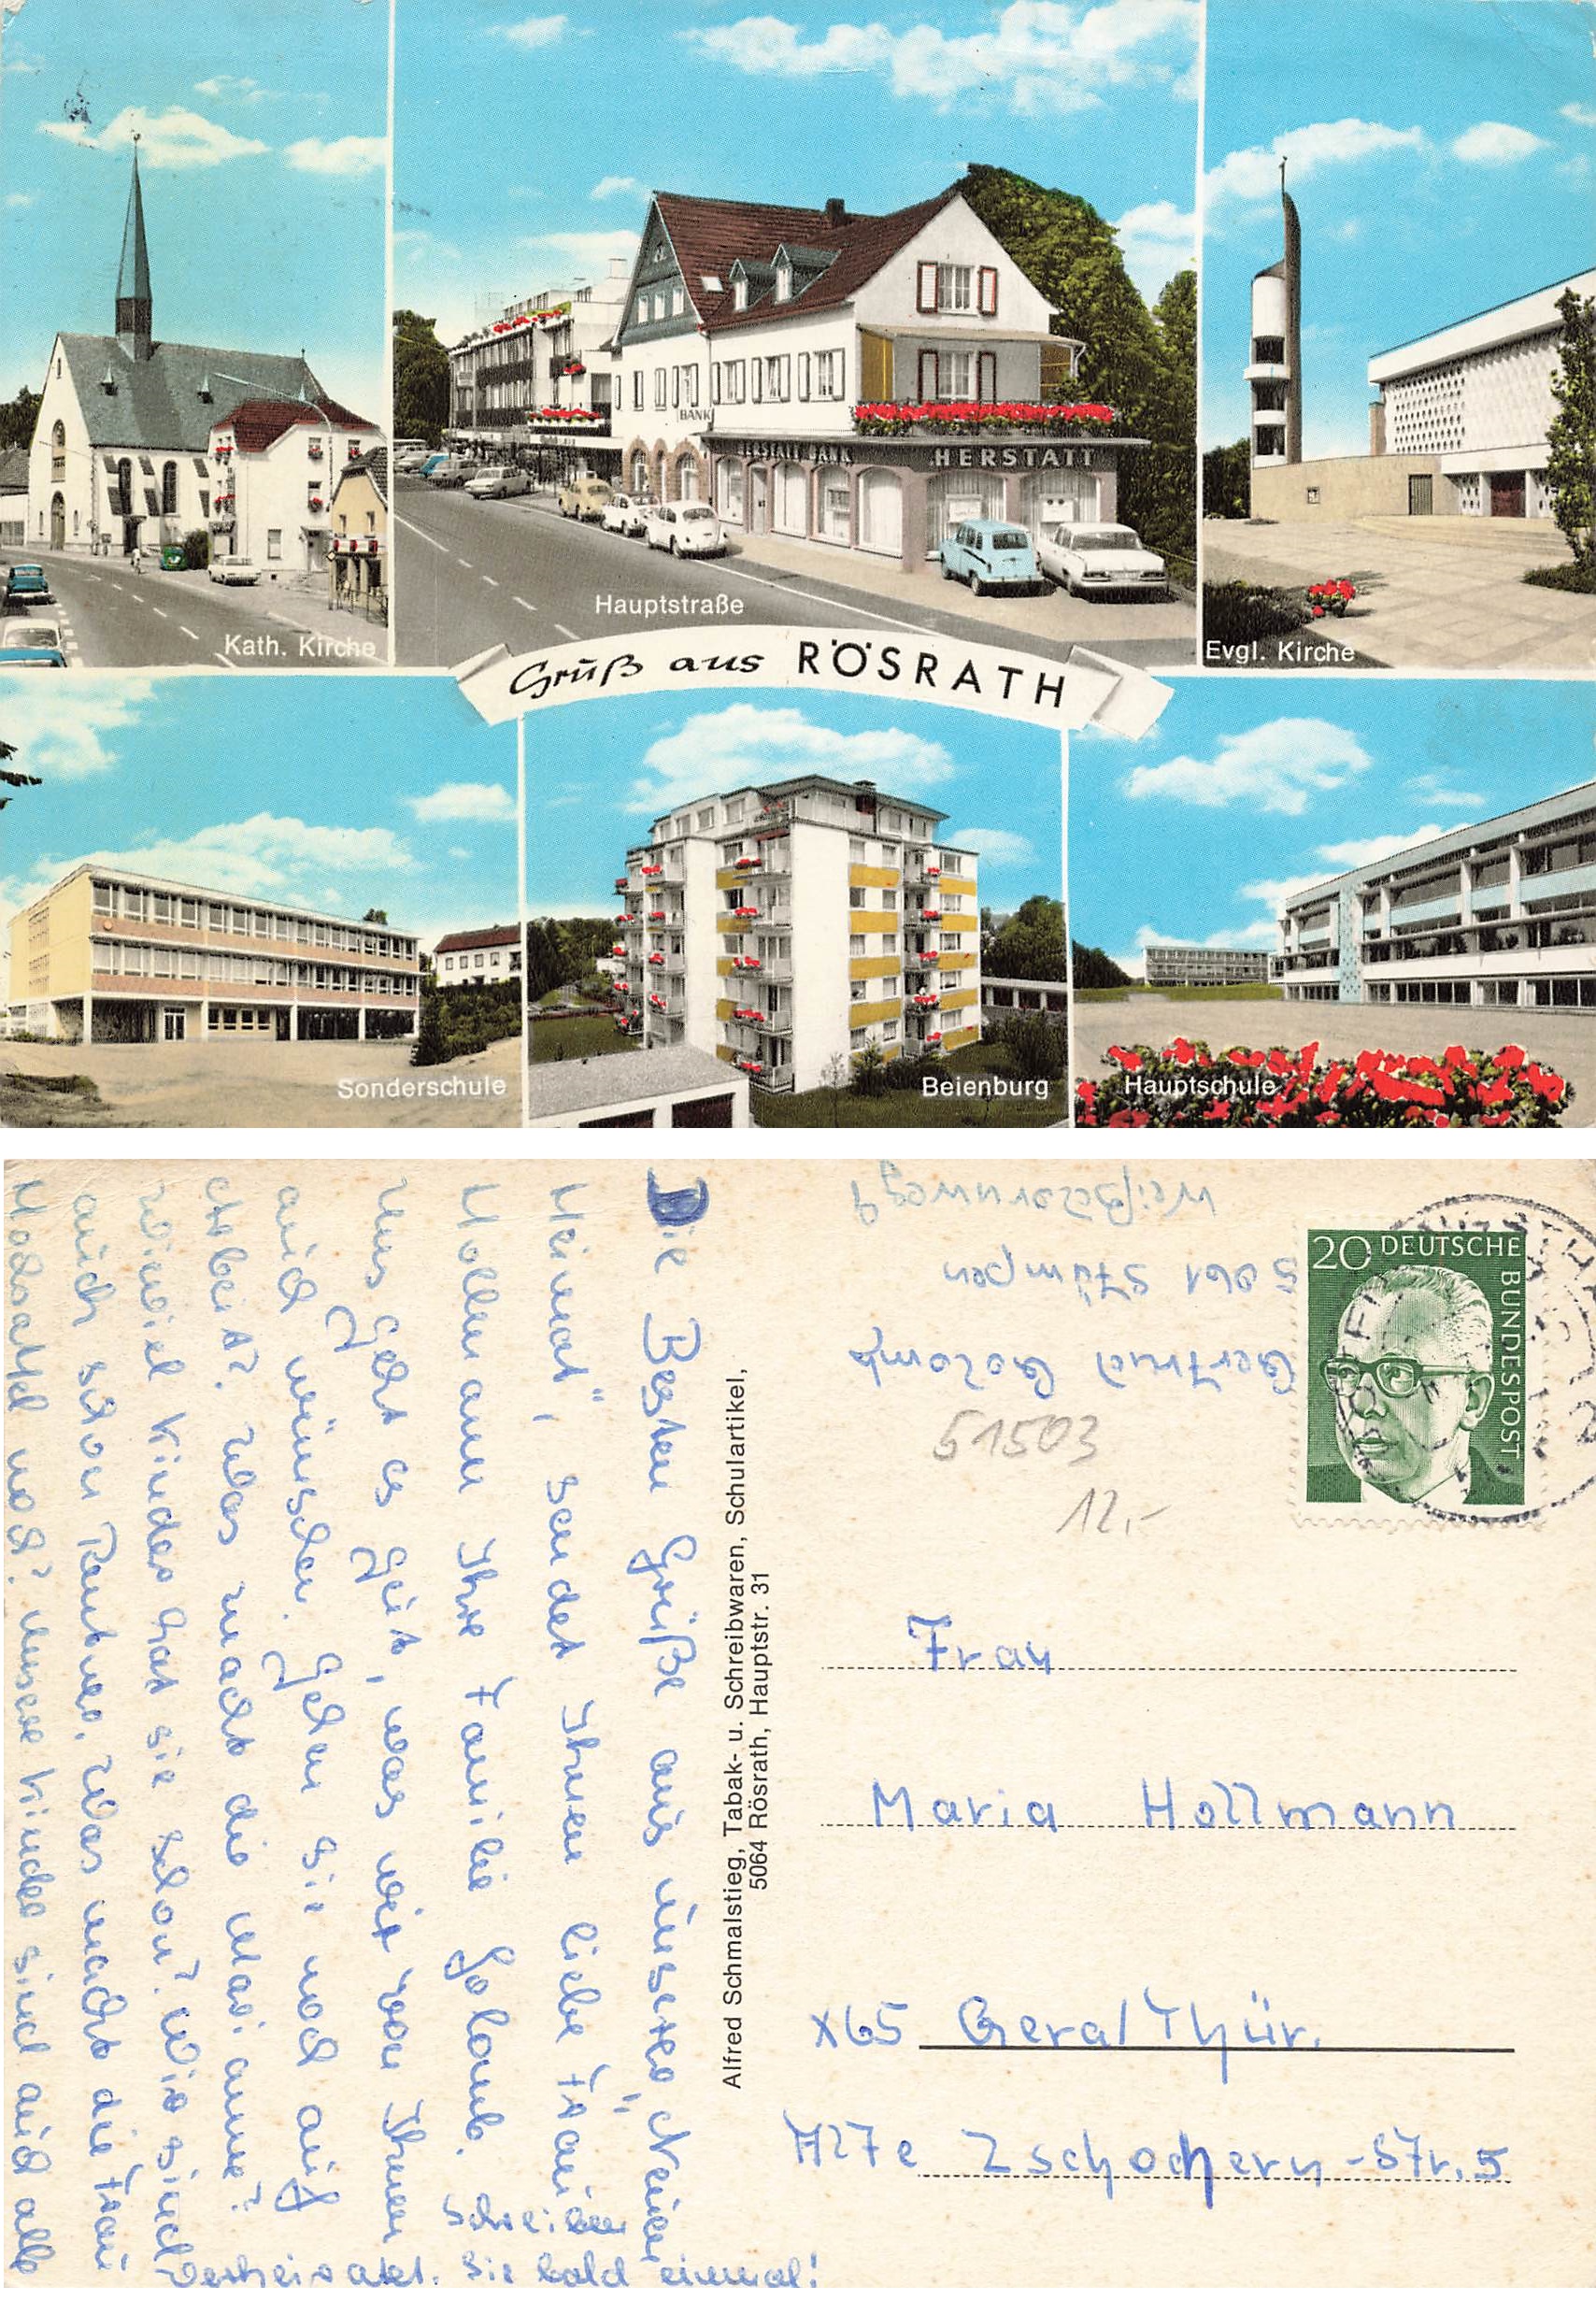 BANK
HERSTATT BANK
HERSTATT
Kath. Kirche
Hauptstraße
Evgl. Kirche
Gruß aus RÖSRATH
Sonderschule
Beienburg
Hauptschule
Die Besten Grüße aus unserer „Neuen
Heimat", sendet Ihnen liebe Frau
Hollmann Ihre Familie Golomb.
Uns geht es gut, was wir von Ihnen
auch wünschen. Gehen Sie noch auf
Arbeit? Was macht die Marianne?
Wieviel Kinder hat sie schon? Wir sind
auch schon Rentner. Was macht die Frau
noch? Unsere Kinder sind auch alle
verheiratet. Schreiben
Sie bald einmal!
Alfred Schmalstieg, Tabak- u. Schreibwaren, Schulartikel,
5064 Rösrath, Hauptstr. 31
Gertrud Golomb
5061 Stümpen
Weißdornweg 9
20 DEUTSCHE BUNDESPOST
51503
12,-
Frau
Maria Hollmann
X65 Gera/Thür.
Alte Zschochern-Str. 5